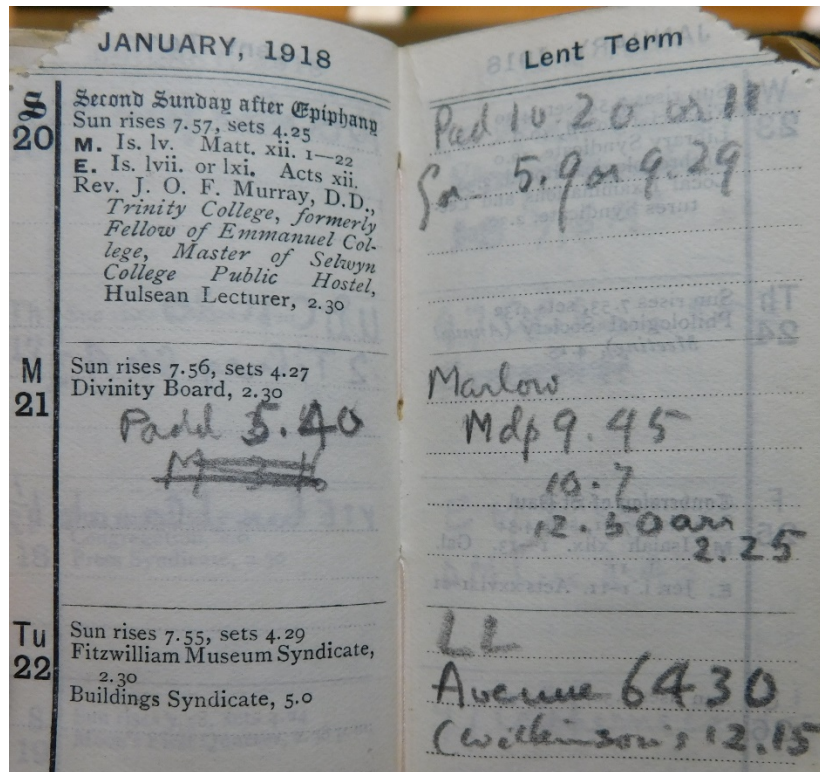 JANUARY, 1918
S
20
Second Sunday after Epiphany
Sun rises 7.57, sets 4.25
M. Is. lv. Matt. xii. 1—22
E. Is. lvii. or lxi. Acts xii.
Rev. J. O. F. Murray, D.D.,
Trinity College, formerly
Fellow of Emmanuel Col-
lege, Master of Selwyn
College Public Hostel,
Hulsean Lecturer, 2.30
M
21
Sun rises 7.56, sets 4.27
Divinity Board, 2.30
Padd 5.40
Tu
22
Sun rises 7.55, sets 4.29
Fitzwilliam Museum Syndicate,
2.30
Buildings Syndicate, 5.0
Lent Term
Pad 10.20 or 11
5.9 or 9.29
Marlow
Mdp 9.45
10.7
12.50 arr
2.25
LL
Avenue 6430
(Wilkinson's 12.15